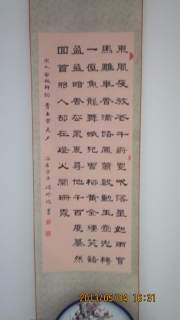 東風夜放花千樹更吹落星如雨寶
馬雕車香滿路鳳簫聲動玉壺光轉
一夜魚龍舞蛾兒雪柳黃金縷笑語
盈盈暗香去眾裏尋他千百度驀然
回首那人卻在燈火闌珊處
青玉案元夕
2013/05/04 16:31